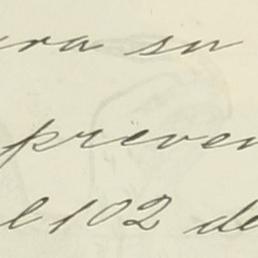 ura su
preven
el 102 de